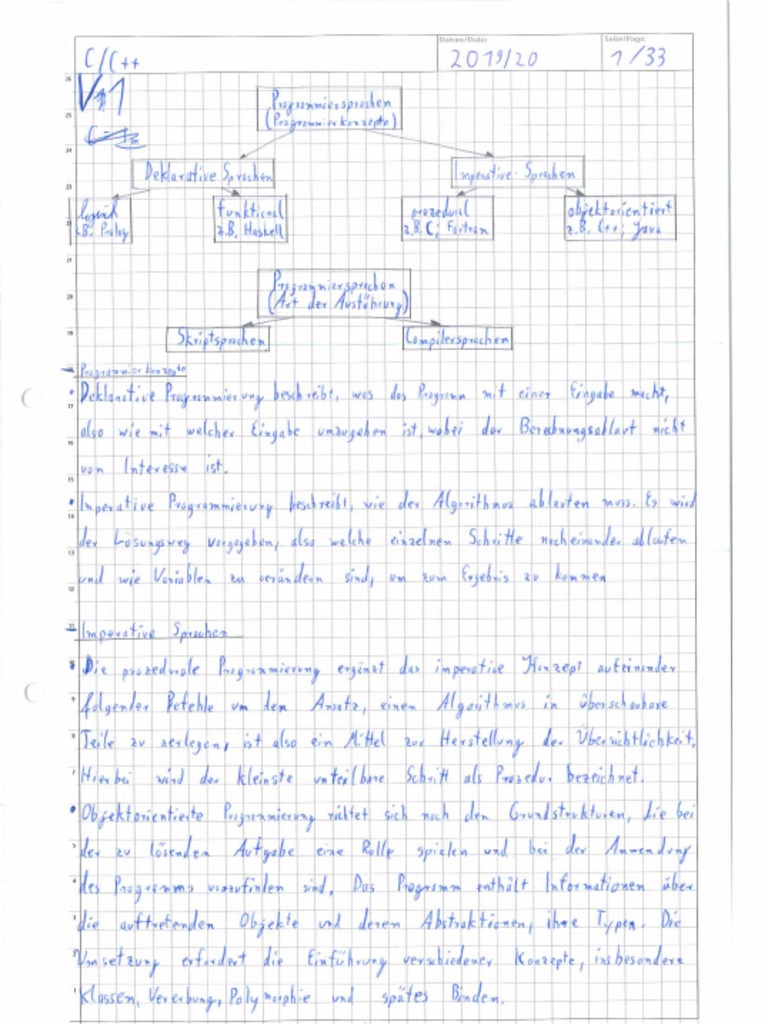 C/C++
Datum/Date:
2019/20
Seite/Page:
1/33
V1
Programmiersprachen
(Programmierkonzepte)
Deklarative Sprachen
Imperative Sprachen
logisch
z.B. Prolog
funktional
z.B. Haskell
prozedural
z.B. C; Fortran
objektorientiert
z.B. C++; Java
Programmiersprachen
(Art der Ausführung)
Skriptsprachen
Compilersprachen
Programmierkonzepte
Deklarative Programmierung beschreibt, was das Programm mit einer Eingabe macht,
also wie mit welcher Eingabe umzugehen ist, wobei der Berechnungsablauf nicht
von Interesse ist.
Imperative Programmierung beschreibt, wie der Algorithmus ablaufen muss. Es wird
der Lösungsweg vorgegeben, also welche einzelnen Schritte nacheinander ablaufen
und wie Variablen zu verändern sind, um zum Ergebnis zu kommen
Imperative Sprachen
Die prozedurale Programmierung ergänzt das imperative Konzept aufeinander
folgender Befehle um den Ansatz, einen Algorithmus in überschaubare
Teile zu zerlegen, ist also ein Mittel zur Herstellung der Übersichtlichkeit,
Hierbei wird der kleinste unteilbare Schritt als Prozedur bezeichnet.
Objektorientierte Programmierung richtet sich nach den Grundstrukturen, die bei
der zu lösenden Aufgabe eine Rolle spielen und bei der Anwendung
des Programms vorzufinden sind. Das Programm enthält Informationen über
die auftretenden Objekte und deren Abstraktionen, ihre Typen. Die
Umsetzung erfordert die Einführung verschiedener Konzepte, insbesondere
Klassen, Vererbung, Polymorphie und spätes Binden.